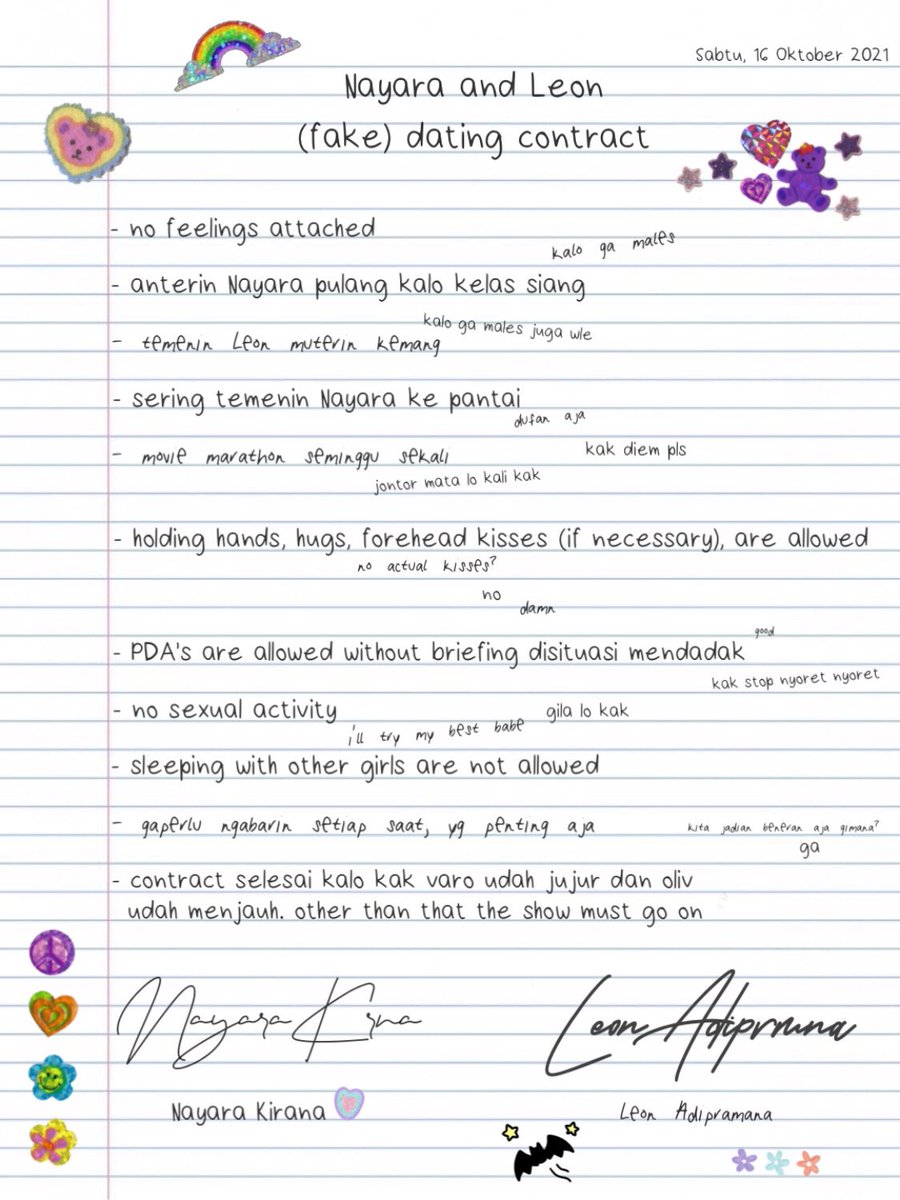 Sabtu, 16 Oktober 2021
Nayara and Leon
(fake) dating contract
- no feelings attached
kalo ga males
- anterin Nayara pulang kalo kelas siang
kalo ga males juga wle
- temenin Leon muterin kemang
- sering temenin Nayara ke pantai
dufan aja
kak diem pls
- movie marathon seminggu sekali
jontor mata lo kali kak
- holding hands, hugs, forehead kisses (if necessary), are allowed
no actual kisses?
no
damn
good
- PDA's are allowed without briefing disituasi mendadak
kak stop nyoret nyoret
- no sexual activity
i'll try my best babe
gila lo kak
- sleeping with other girls are not allowed
- gaperlu ngabarin setiap saat, yg penting aja
kita jadian beneran aja gimana?
ga
- contract selesai kalo kak varo udah jujur dan oliv
udah menjauh. other than that the show must go on
Nayara Kirna
Leon Adiprmna
Nayara Kirana
Leon Adipramana